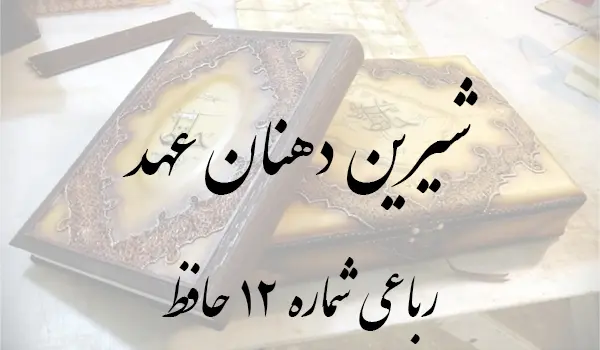 شیرین دهنان عهد
رباعی شماره ۱۲ حافظ